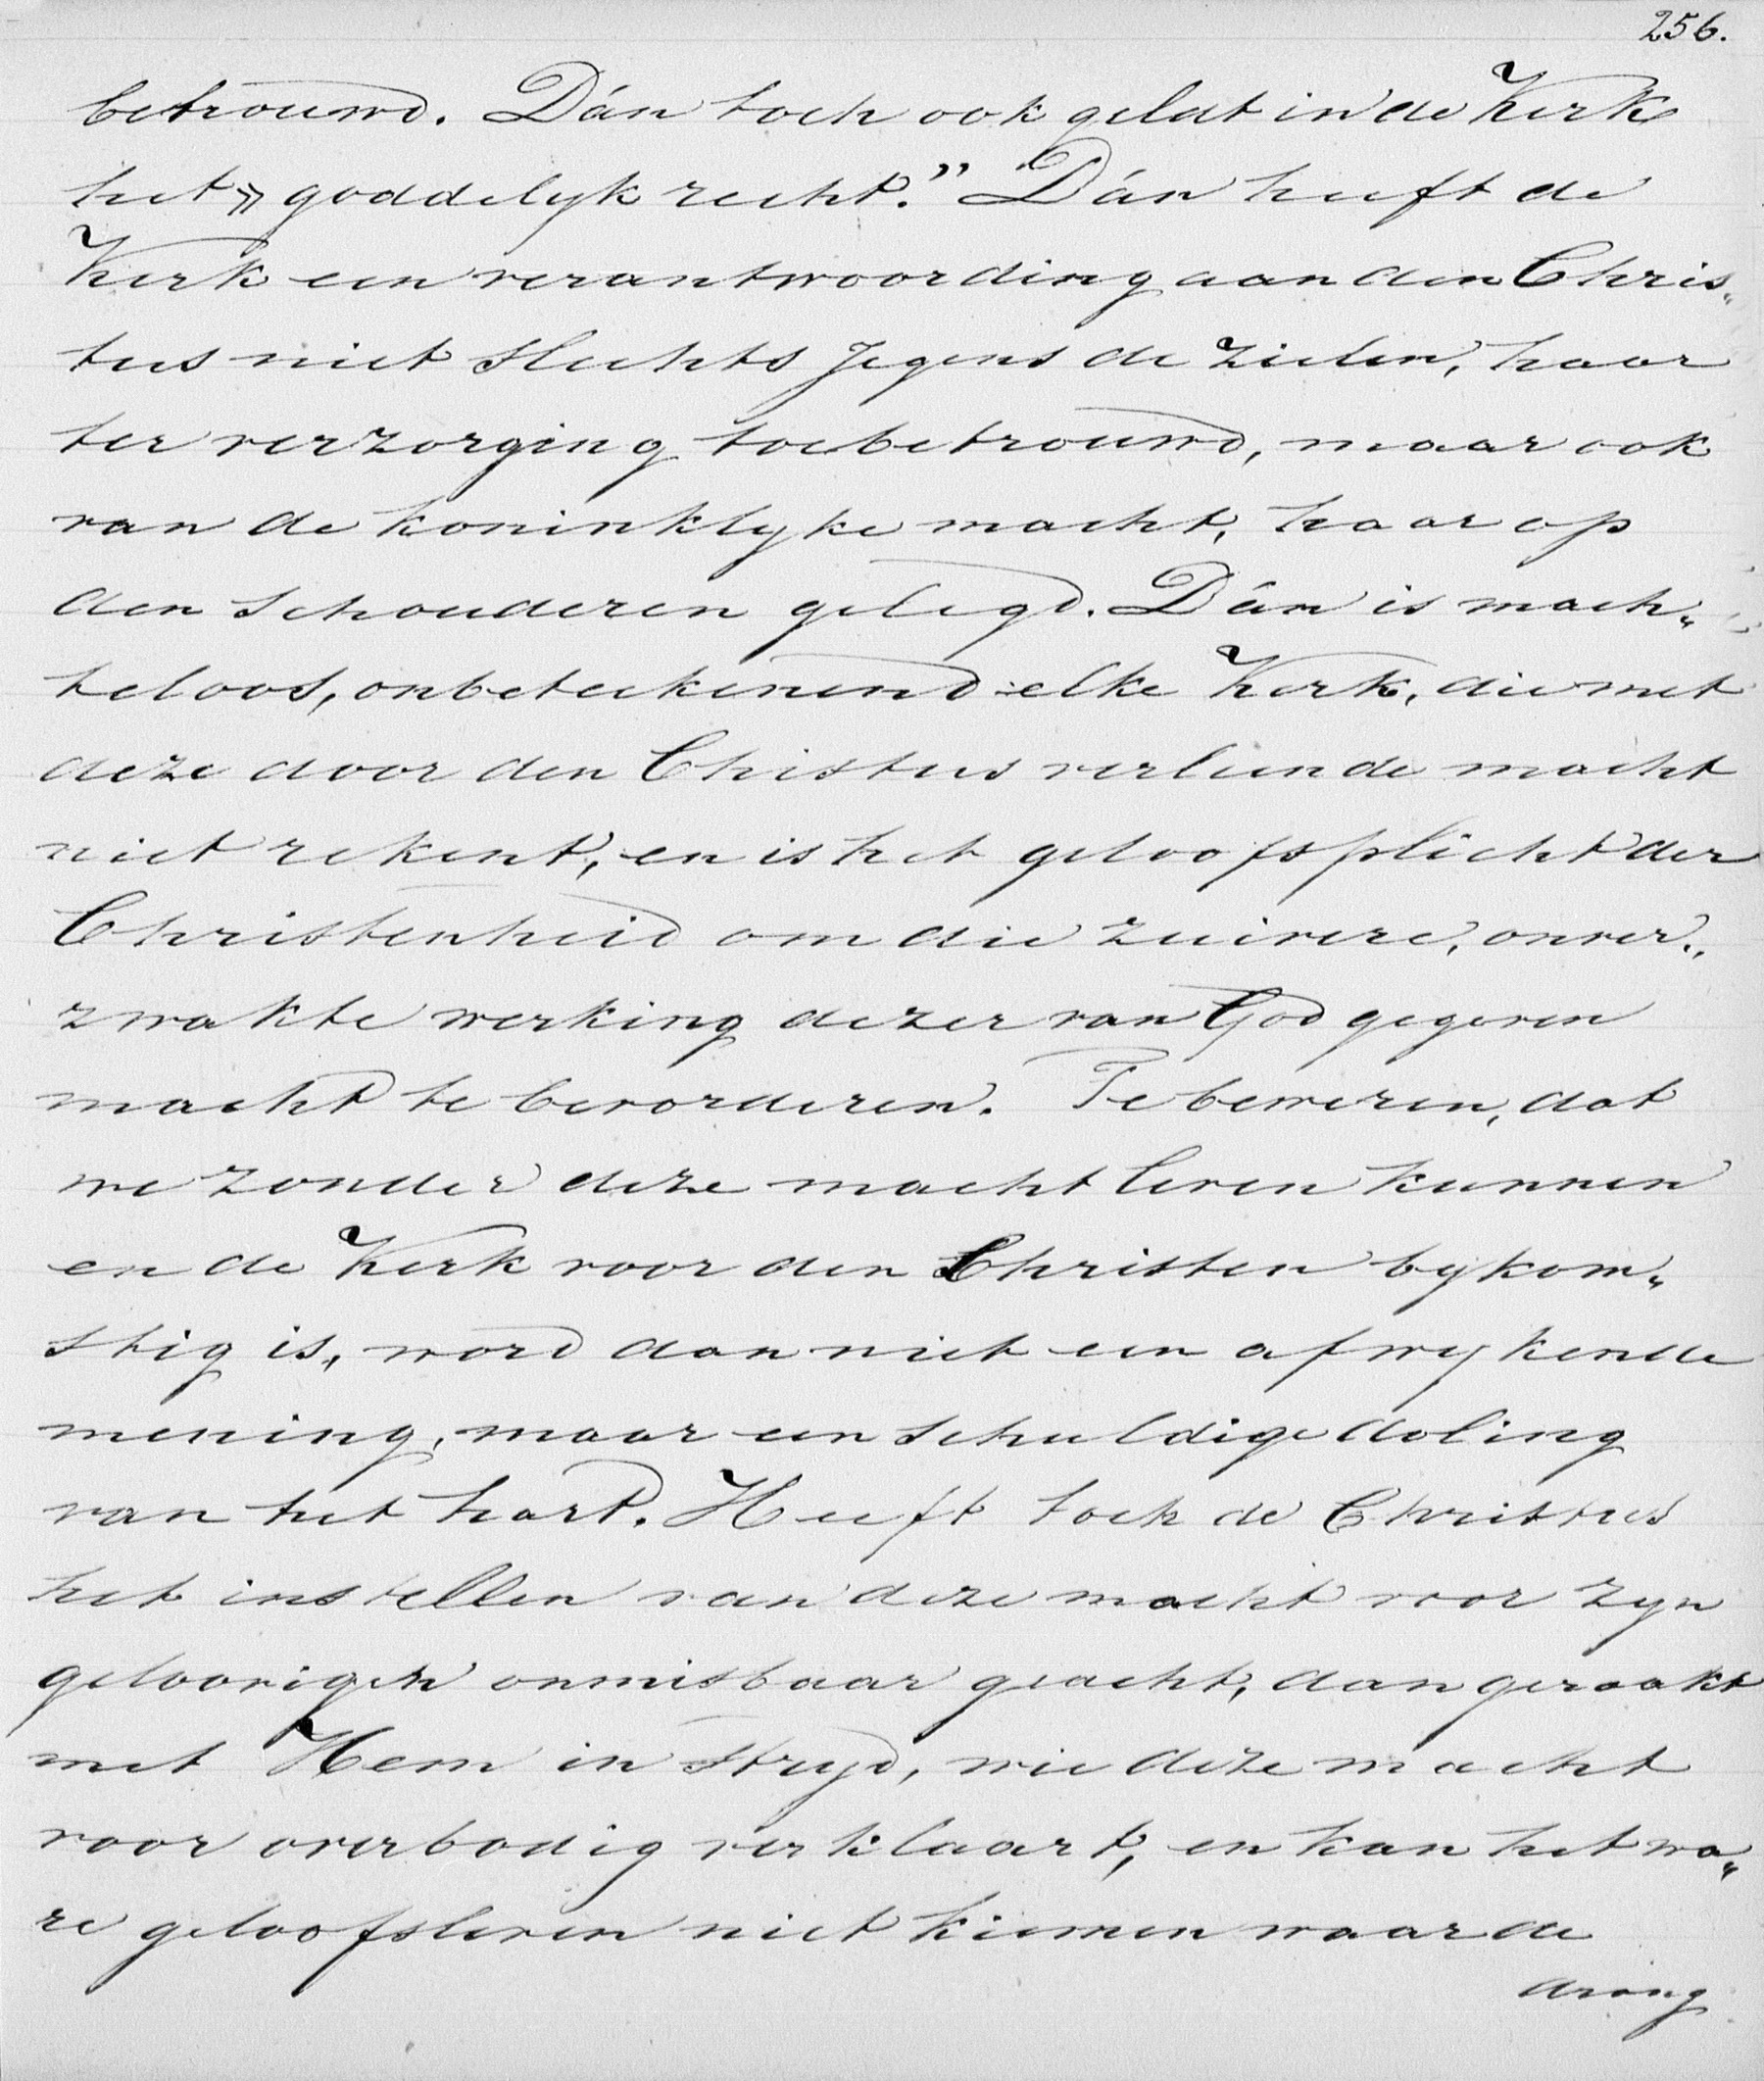 256.
betrouwd. Dán toch ook geldt in de Kerk
het „goddelyk recht." Dán heeft de
Kerk een verantwoording aan den Chris„
tus niet slechts jegens de zielen, haar
ter verzorging toebetrouwd, maar ook
van de koninklyke macht, haar op
den schouderen gelegd. Dán is mach„
teloos, onbeteekenend elke Kerk, die met
deze door den Christus verleende macht
niet rekent, en is het geloofsplicht der
Christenheid om die zuivere, onver„
zwakte werking dezer van God gegeven
macht te bevorderen. Te beweren, dat
we zonder deze macht leven kunnen
en de Kerk voor den Christen bykom„
stig is, word dan niet een afwykende
mening, maar een schuldige doling
van het hart. Heeft toch de Christus
het instellen van deze macht voor zyn
geloovigen onmisbaar geacht, dan geraakt
met Hem in stryd, wie deze macht
voor overbodig verklaart, en kan het wa„
re geloofsleven niet kiemen waar de
drang